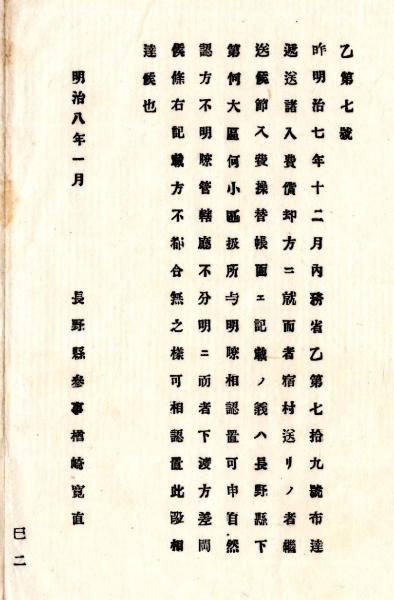 乙第七號
昨明治七年十二月內務省乙第七拾九號布達
遞送諸入費償却方ニ就而者宿村送リノ者繼
送候節入費操替帳面エ記載ノ義ハ長野縣下
第何大區何小區扱所与明瞭相認置可申自然
認方不明瞭管轄廳不分明ニ而者下渡方差閊
候條右記載方不都合無之樣可相認置此段相
達候也
明治八年一月
長野縣參事楢崎寬直
二